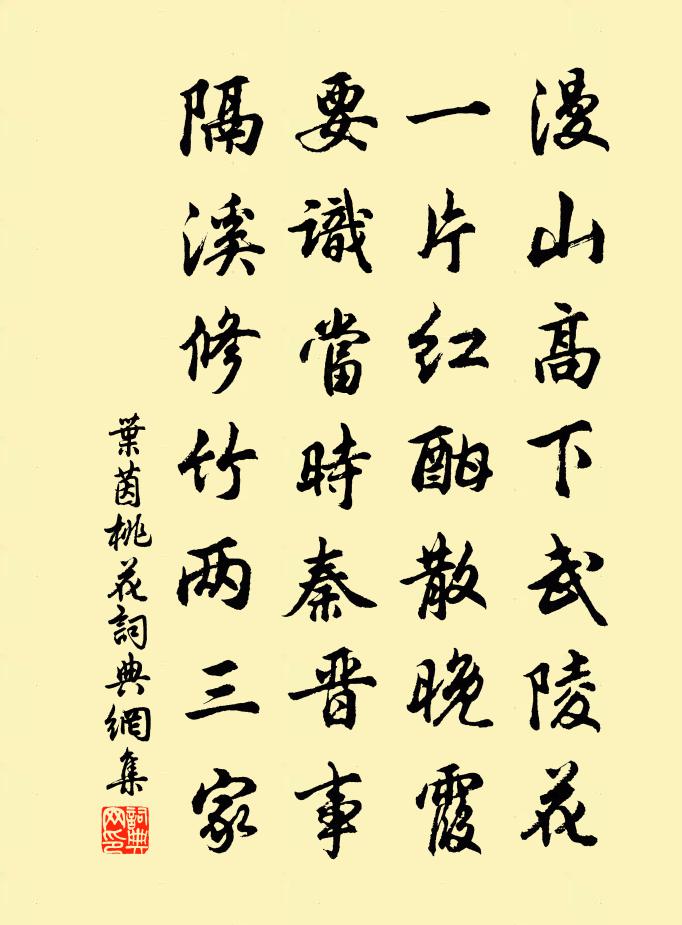 漫山高下武陵花
一片紅酣散晚霞
要識當時秦晋事
隔溪修竹两三家
葉茵桃花詞典網集
詞典網印